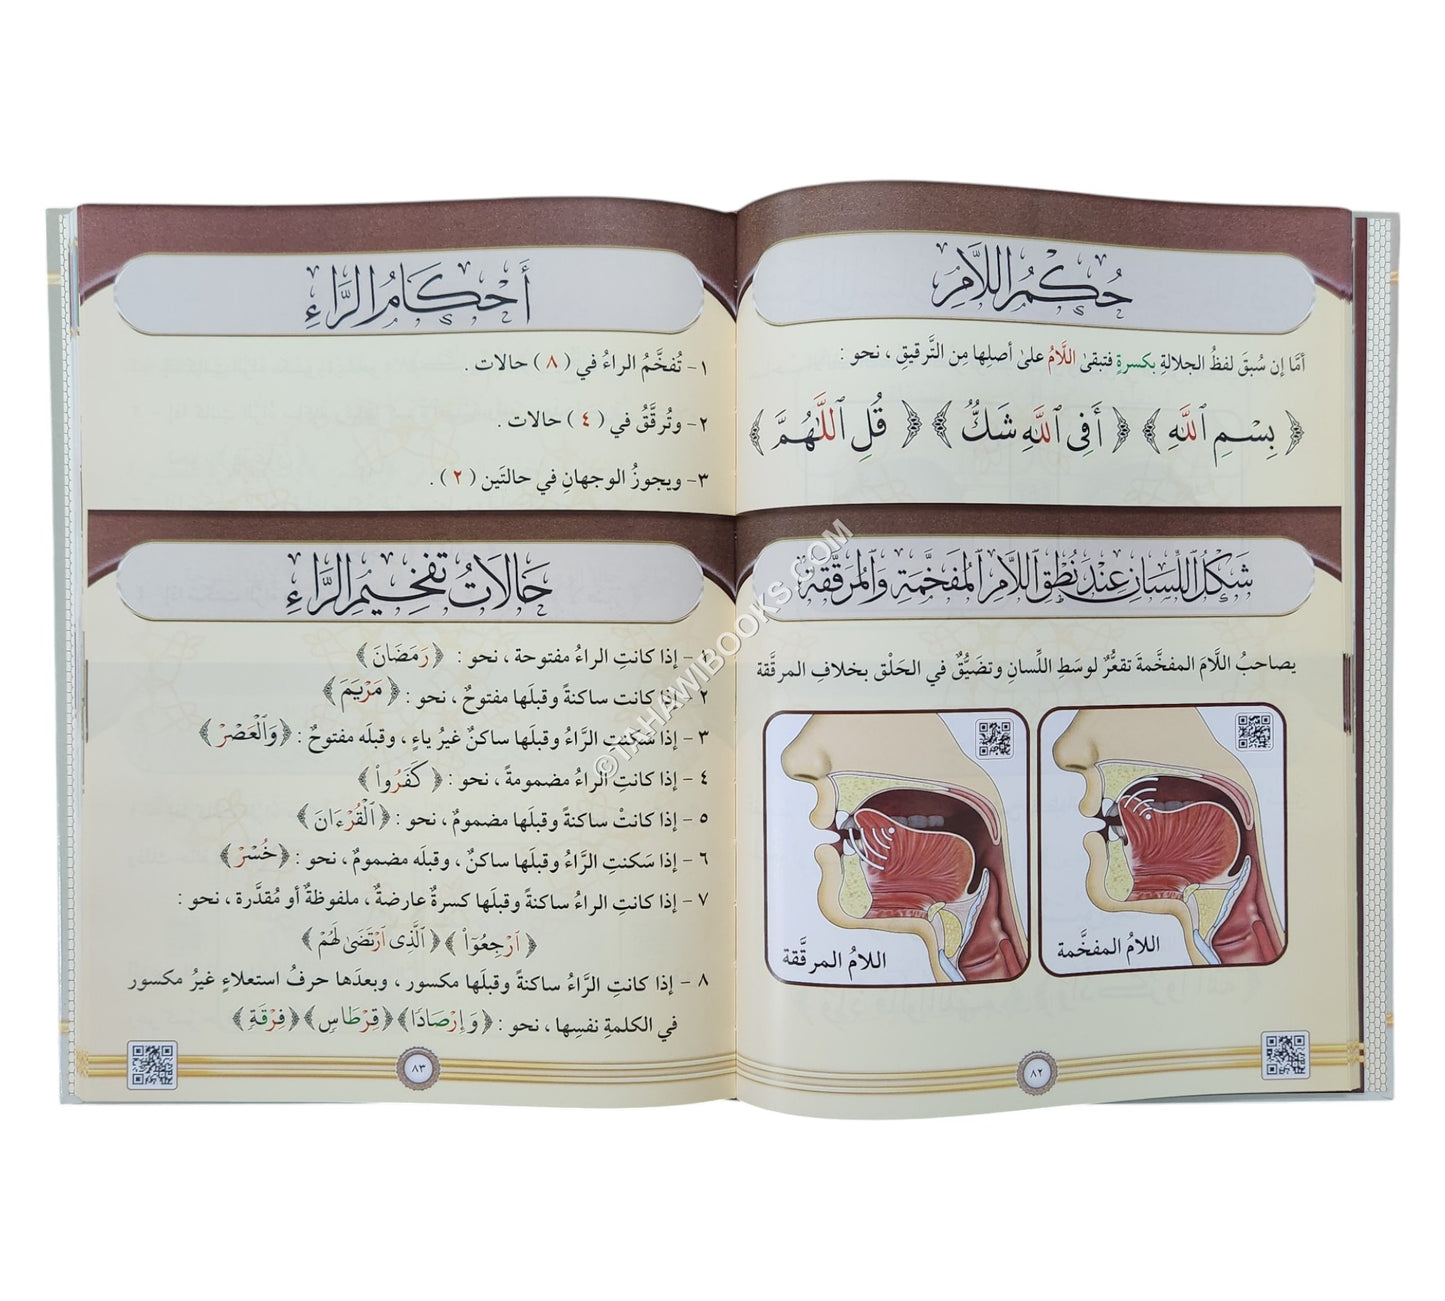 حُكْمُ اللَّامِ
أمَّا إن سُبقَ لفظُ الجلالةِ بكسرةٍ فتبقى اللَّامُ على أصلِها مِن التَّرقيقِ ، نحو :
﴿ بِسْمِ ٱللَّهِ ﴾ ﴿ أَفِى ٱللَّهِ شَكٌّ ﴾ ﴿ قُلِ ٱللَّهُمَّ ﴾
شَكْلُ اللِّسَانِ عِنْدَ نُطْقِ اللَّامِ المُفَخَّمَةِ وَالمُرَقَّقَةِ
يصاحبُ اللَّامَ المفخَّمةَ تقعُّرٌ لوسَطِ اللِّسانِ وتضيُّقٌ في الحَلْق بخلافِ المرقَّقة
اللامُ المفخَّمة
اللامُ المرقَّقة
٨٢
أَحْكَامُ الرَّاءِ
١- تُفخَّمُ الراءُ في ( ٨ ) حالات .
٢- وتُرقَّقُ في ( ٤ ) حالات .
٣- ويجوزُ الوجهانِ في حالتَين ( ٢ ) .
حَالَاتُ تَفْخِيمِ الرَّاءِ
١ - إذا كانتِ الراءُ مفتوحة ، نحو : ﴿ رَمَضَانَ ﴾
٢ - إذا كانت ساكنةً وقبلَها مفتوحٌ ، نحو : ﴿ مَرْيَمَ ﴾
٣ - إذا سَكنتِ الرَّاءُ وقبلَها ساكنٌ غيرُ ياءٍ ، وقبلَه مفتوحٌ : ﴿ وَٱلْعَصْرْ ﴾
٤ - إذا كانتِ الراءُ مضمومةً ، نحو : ﴿ كَفَرُوا۟ ﴾
٥ - إذا كانتْ ساكنةً وقبلَها مضمومٌ ، نحو : ﴿ ٱلْقُرْءَانَ ﴾
٦ - إذا سَكنتِ الرَّاءُ وقبلَها ساكنٌ ، وقبلَه مضمومٌ ، نحو : ﴿ خُسْرْ ﴾
٧ - إذا كانتِ الراءُ ساكنةً وقبلَها كسرةٌ عارضةٌ ، ملفوظةٌ أو مُقدَّرة ، نحو :
﴿ ٱرْجِعُوٓا۟ ﴾ ﴿ ٱلَّذِى ٱرْتَضَىٰ لَهُمْ ﴾
٨ - إذا كانتِ الرَّاءُ ساكنةً وقبلَها مكسور ، وبعدَها حرفُ استعلاءٍ غيرُ مكسور
في الكلمةِ نفسِها ، نحو : ﴿ وَإِرْصَادًا ﴾ ﴿ قِرْطَاسٍ ﴾ ﴿ فِرْقَةٍ ﴾
٨٣
©TAHAWIBOOKS.COM